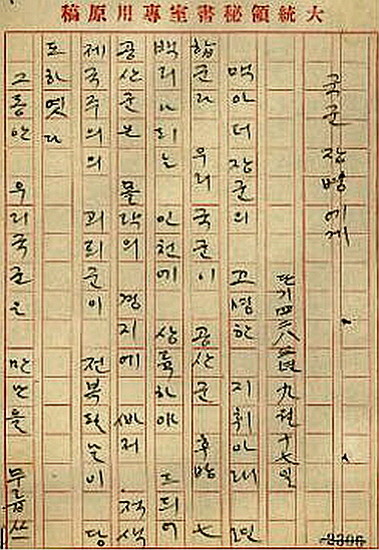 大統領秘書室專用原稿
국군 장병에게
단기四二八三年 九월 十七일
맥아더장군의 고명한 지휘아래 련
합군과 우리 국군이 공산군 후방 七
백리나되는 인천에 상륙하야 드듸여
공산군은 몰락의 경지에 빠저 적색
제국주의의 괴뢰군이 전복될날이 당
도하엿다
그동안 우리국군은 만난을 무릅쓰
2306